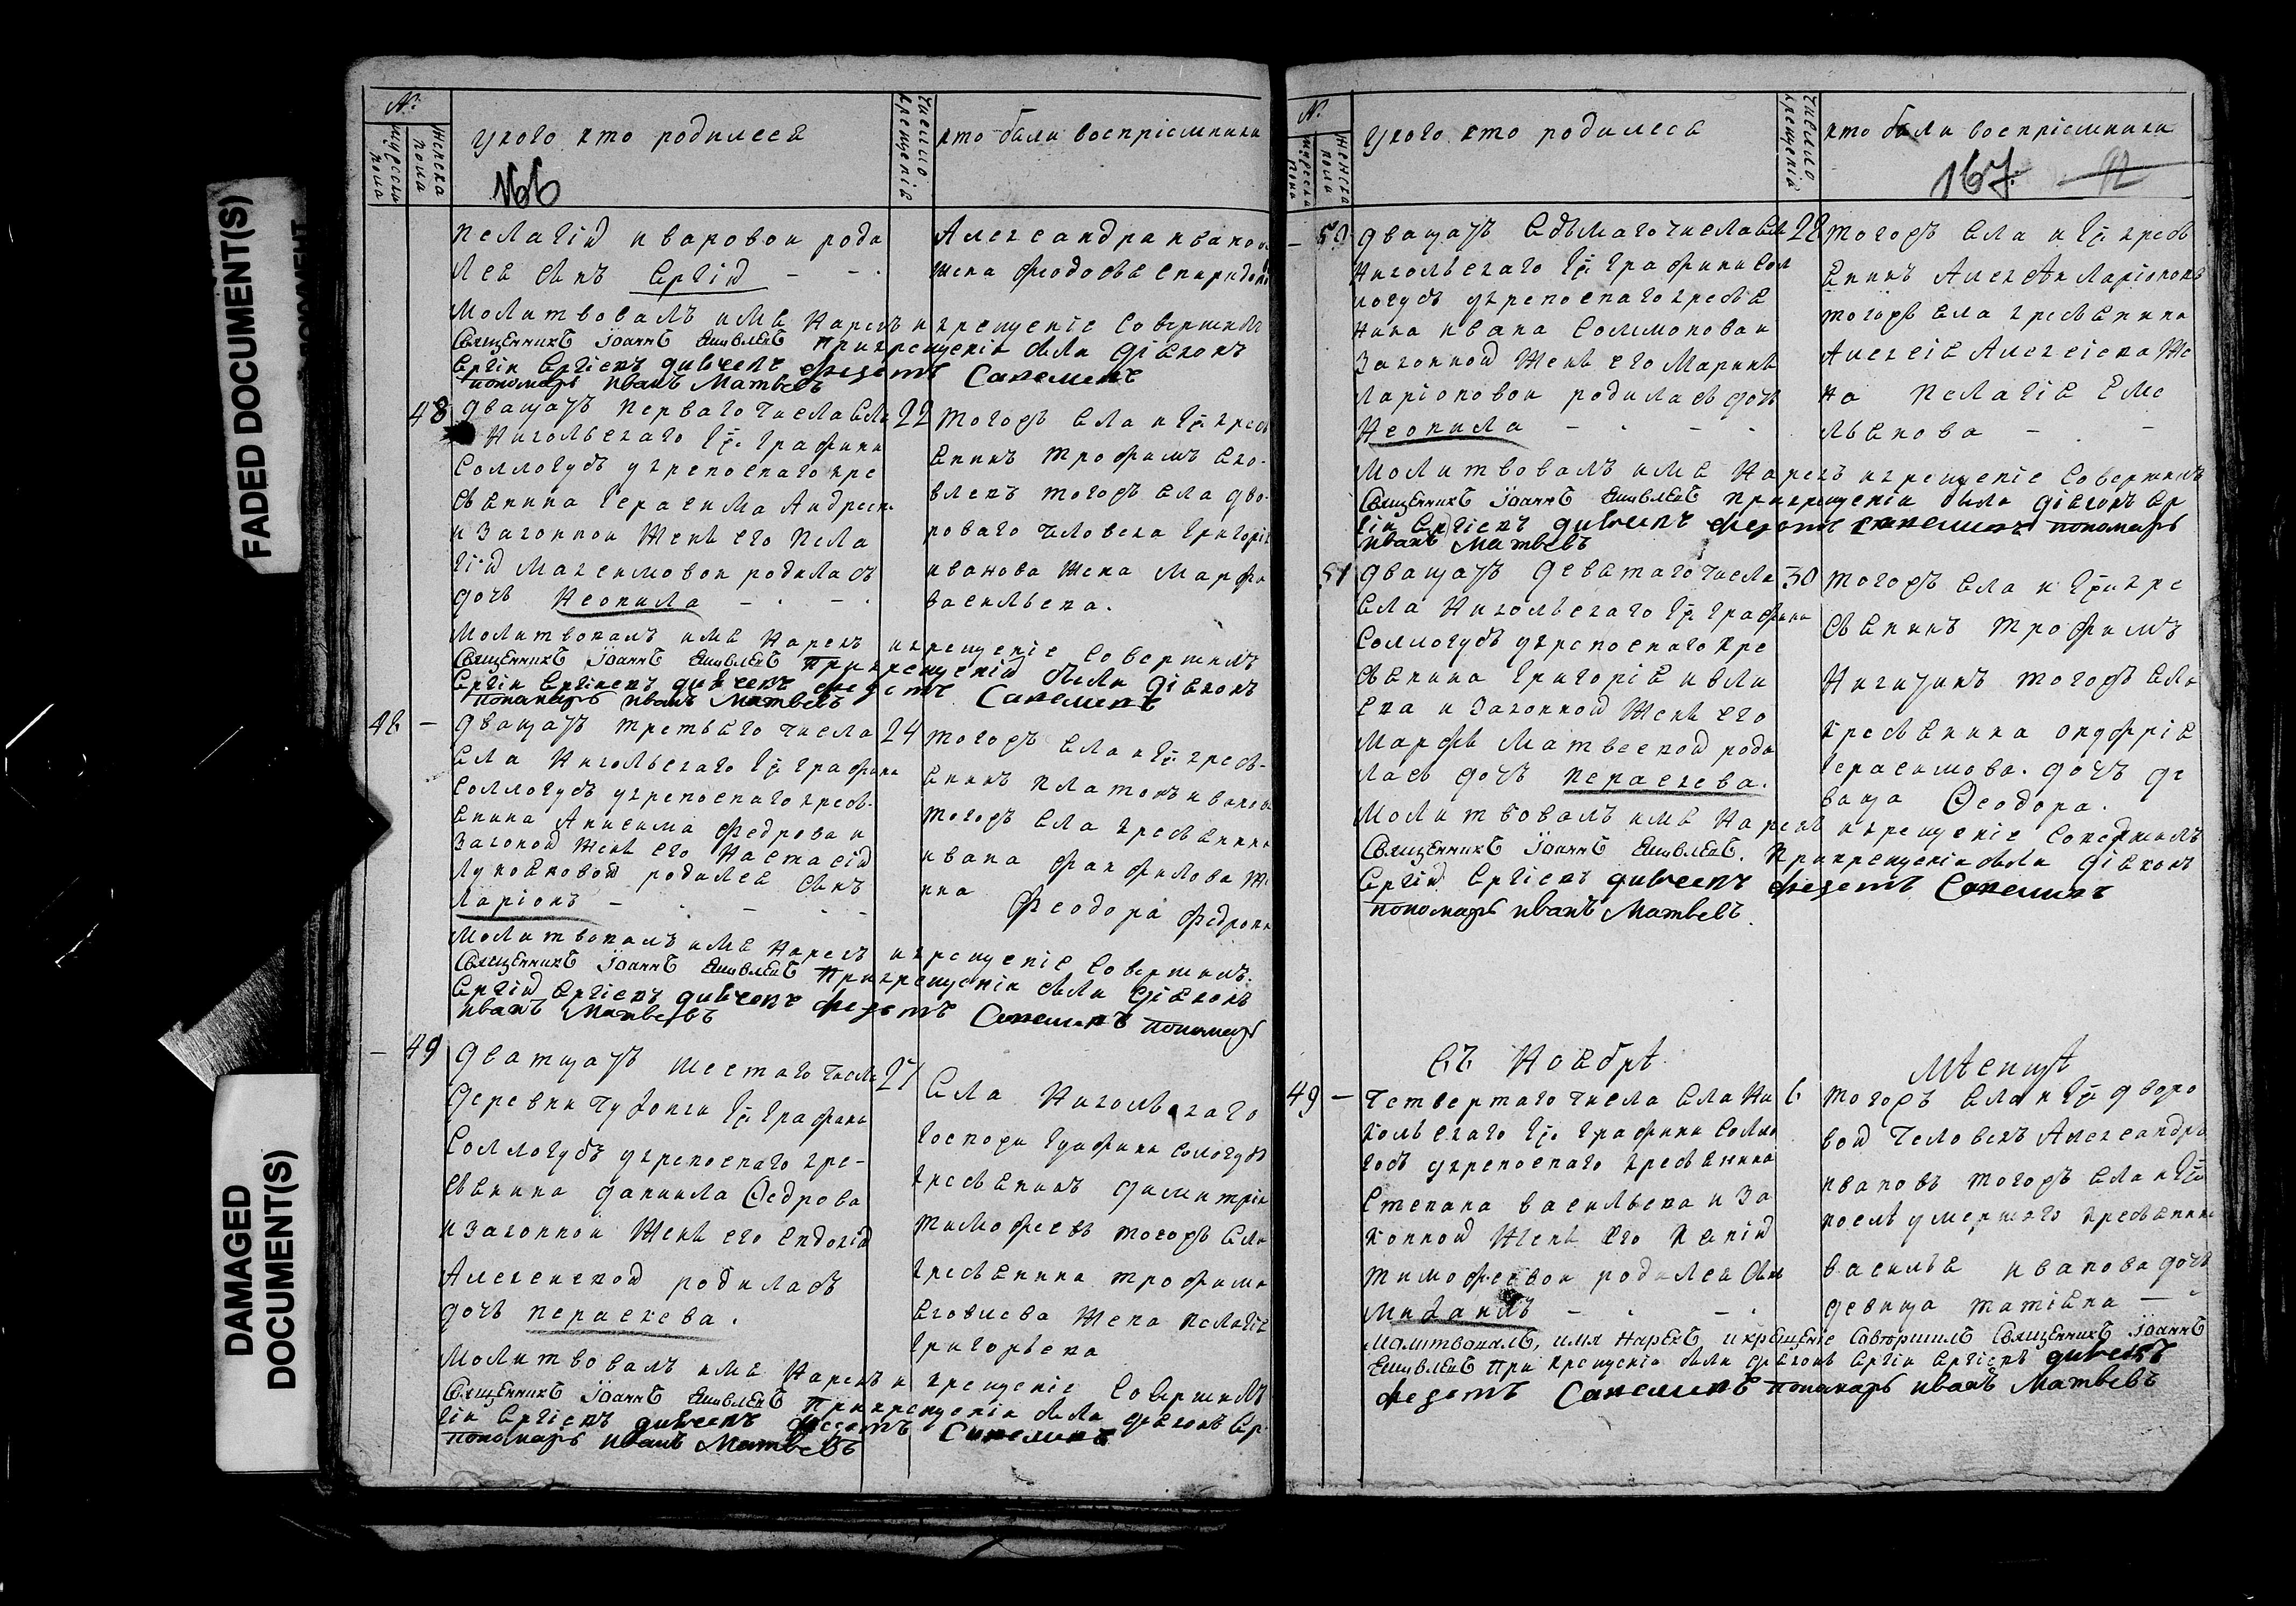 FADED DOCUMENT(S)
DAMAGED
DOCUMENT(S)
№
мужеска пола
женска пола
у кого кто родилсѧ
число крещенiѧ
кто были воспрiемники
166
Пелагiи ивановои роди
лсѧ сынъ Сергiи
Александра иванова
жена Феодосьѧ спиридоно
молитвовалъ имѧ нарекъ и крещенiе совершилъ
Священникъ Iоаннъ Яковлевъ при крещенiи были дiѧконъ
Сергiи Сергiевъ дьячекъ федотъ Савельевъ
пономарь иванъ Матвеевъ
48
дватцать перваго числа села
Никольскаго Гж. Графини
Соллогубъ укрепоснаго кре
стьѧнина Герасима Андреев
и законнои жены его Пела
гiи Максимовои родилась
дочь Неонила
22
тогожъ села и Гж. крест
ьѧнинъ трофимъ Ѧко
влевъ тогожъ села дво
роваго человека григорiѧ
иванова жена Марфа
васильева.
молитвовалъ имѧ нарекъ и крещенiе совершилъ
Священникъ Iоаннъ Яковлевъ при крещенiи были дiѧконъ
Сергiи Сергiевъ дьячекъ федотъ Савельевъ
пономарь иванъ Матвеевъ
48 –
дватцать третьѧго числа
села Никольскаго Гж. графини
Соллогубъ укрепоснаго кресть
ѧнина Анисима Федрова и
законои жены его Настасiи
Лукоѧновои родилсѧ сынъ
Ларiонъ
24
тогожъ села и Гж. кресть
ѧнинъ Платонъ иванов
тогожъ села крестьѧнина
ивана Фанфилова же
нна Феодора Федрова
молитвовалъ имѧ нарекъ и крещенiе совершилъ.
Священникъ Iоаннъ Яковлевъ при крещенiи были дiѧконъ
Сергiи Сергiевъ дьячекъ федотъ Савельевъ пономарь
иванъ Матвеевъ
– 49
дватцать шестаго числа
деревни Гж. Графини
Соллогубъ укрепоснаго кре
стьѧнина даниила Ѳедрова
и законнои жены его Евдокiи
Алексеевои родилась
дочь параскева.
27
села Никольскаго
Госпожи Графини сологубъ
крестьѧнинъ димитрiи
тимофеевъ тогожъ села
крестьѧнина трофима
Ѧковлева жена пелагiѧ
григорьева
молитвовалъ имѧ нарекъ и крещенiе совершилъ
Священникъ Iоаннъ Яковлевъ при крещенiи были дiѧконъ Сер
гiи Сергiевъ дьячекъ федотъ Савельевъ
пономарь иванъ Матвеевъ
№
мужеска пола
женска пола
у кого кто родилсѧ
число крещенiѧ
кто были воспрiемники
167
92
– 50
дватцать седьмаго числа села
Никольскаго Гж. Графини Сол
логубъ укрепоснаго крестьѧ
нина ивана Соломонова и
законнои жены его Марины
ларiоновои родилась дочь
Неонила
28
тогожъ села и Гж. кресть
ѧнинъ Алексѣи Ларiоновъ
тогожъ села крестьѧнина
Алексiѧ Алексiева же
на Пелагiѧ Еме
льѧнова
молитвовалъ имѧ нарекъ и крещенiе совершилъ
Священникъ Iоаннъ Яковлевъ при крещенiи были дiѧконъ Сер
гiи Сергiевъ дьячекъ федотъ Савельевъ пономарь
иванъ Матвеевъ
51
дватцать девѧтаго числа
села Никольскаго Гж. Графини
Соллогубъ укрепоснаго кре
стьѧнина григорiѧ
и законнои жены его
Марфы Матвеевои роди
лась дочь параскева.
30
тогожъ села и Гжи кре
стьѧнинъ трофимъ
Никитинъ тогожъ села
крестьѧнина онофрiѧ
герасимова дочь де
вица Ѳеодора.
молитвовалъ имѧ нарекъ и крещенiе совершилъ
Священникъ Iоаннъ Яковлевъ. при крещенiи были дiѧконъ
Сергiи Сергiевъ дьячекъ федотъ Савельевъ
пономарь иванъ Матвеевъ.
Въ Ноѧбрѣ Мѣсицѣ
49 –
четвертаго числа села Ни
кольскаго Гж. графини Солло
губъ укрепоснаго крестьѧнина
Степана васильева и за
конной жены его Ксенiи
тимофеевои родилсѧ сынъ
Михаилъ
6
тогожъ села и Гж дворо
вои человекъ Александръ
ивановъ тогожъ села и Гж
послѣ умершаго крестьѧнина
васильѧ иванова дочь
девица татiѧна
молитвовалъ, имя нарекъ и крещенiе совершилъ Священникъ Iоаннъ
Яковлевъ при крещенiи были дiѧконъ Сергiи Сергiевъ дьячекъ
федотъ Савельевъ пономарь иванъ Матвеевъ